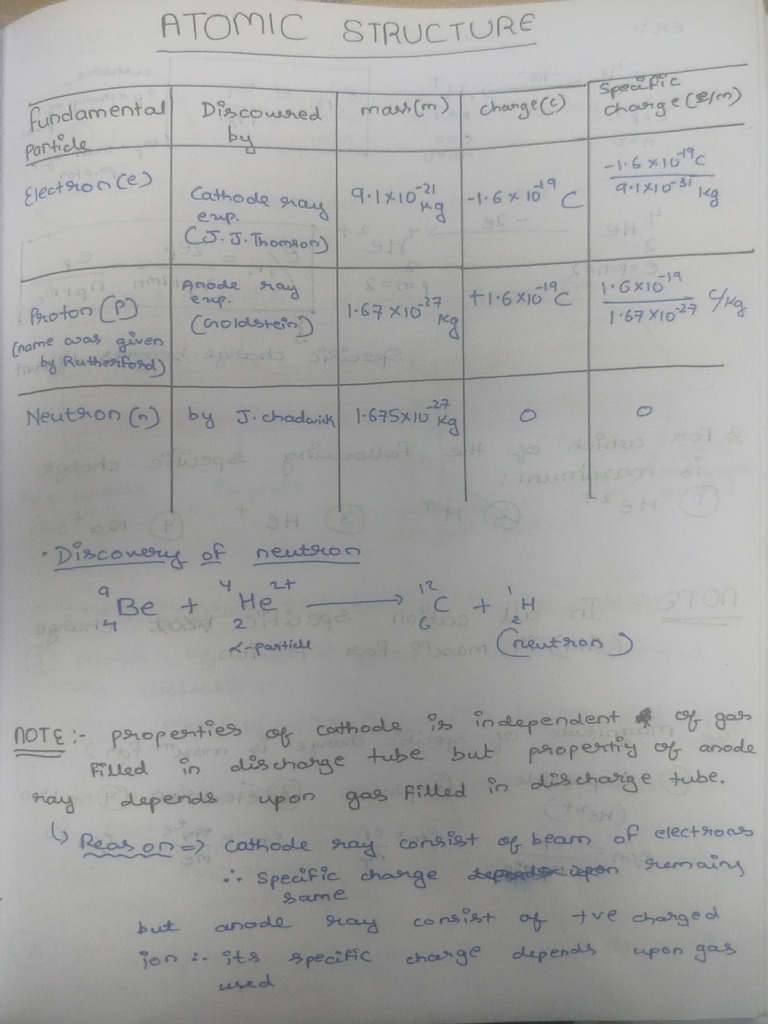 ATOMIC STRUCTURE
Fundamental Particle | Discovered by | mass(m) | charge(c) | Specific charge(e/m)
Electron(e) | Cathode ray exp. (J.J. Thomson) | 9.1×10⁻²¹ kg | -1.6×10⁻¹⁹ C | -1.6×10⁻¹⁹C / 9.1×10⁻³¹ kg
Proton(P) (name was given by Rutherford) | Anode ray exp. (Goldstein) | 1.67×10⁻²⁷ kg | +1.6×10⁻¹⁹ C | 1.6×10⁻¹⁹ / 1.67×10⁻²⁷ C/kg
Neutron(n) | by J. chadwick | 1.675×10⁻²⁷ kg | 0 | 0
· Discovery of neutron
⁹₄Be + ⁴₂He²⁺ ⟶ ¹²₆C + ¹₂H
α-particle (neutron)
NOTE:- properties of cathode is independent of gas
filled in discharge tube but propertiy of anode
ray depends upon gas filled in discharge tube.
↳ Reason ⇒ cathode ray consist of beam of electrons
∴ Specific charge remains
same
but anode ray consist of +ve charged
ion ∴ its specific charge depends upon gas
used